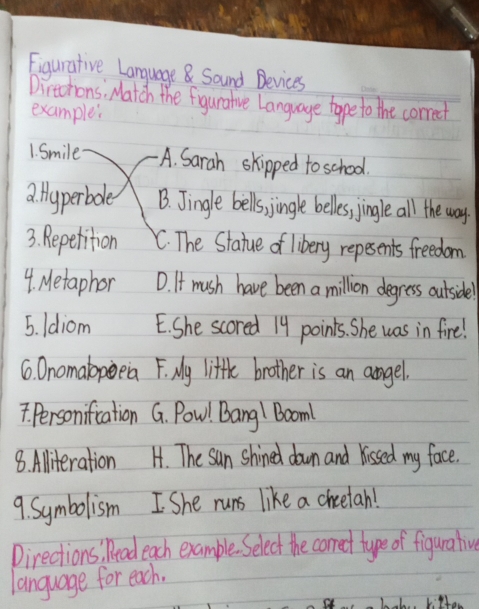 Figurative Language & Sound Devices
Directions: Match the figurative Language type to the correct
example:
1. Smile A. Sarah skipped to school.
2. Hyperbole B. Jingle bells, jingle belles, jingle all the way.
3. Repetition C. The Statue of libery repesents freedom
4. Metaphor D. It mush have been a million degress outside!
5. Idiom E. She scored 14 points. She was in fire!
6. Onomatopoeia F. My little brother is an angel.
7. Personification G. Pow! Bang! Boom!
8. Alliteration H. The sun shined down and kissed my face.
9. Symbolism I. She runs like a cheetah!
Directions: Read each example. Select the correct type of figurative
language for each.
a baby kitten